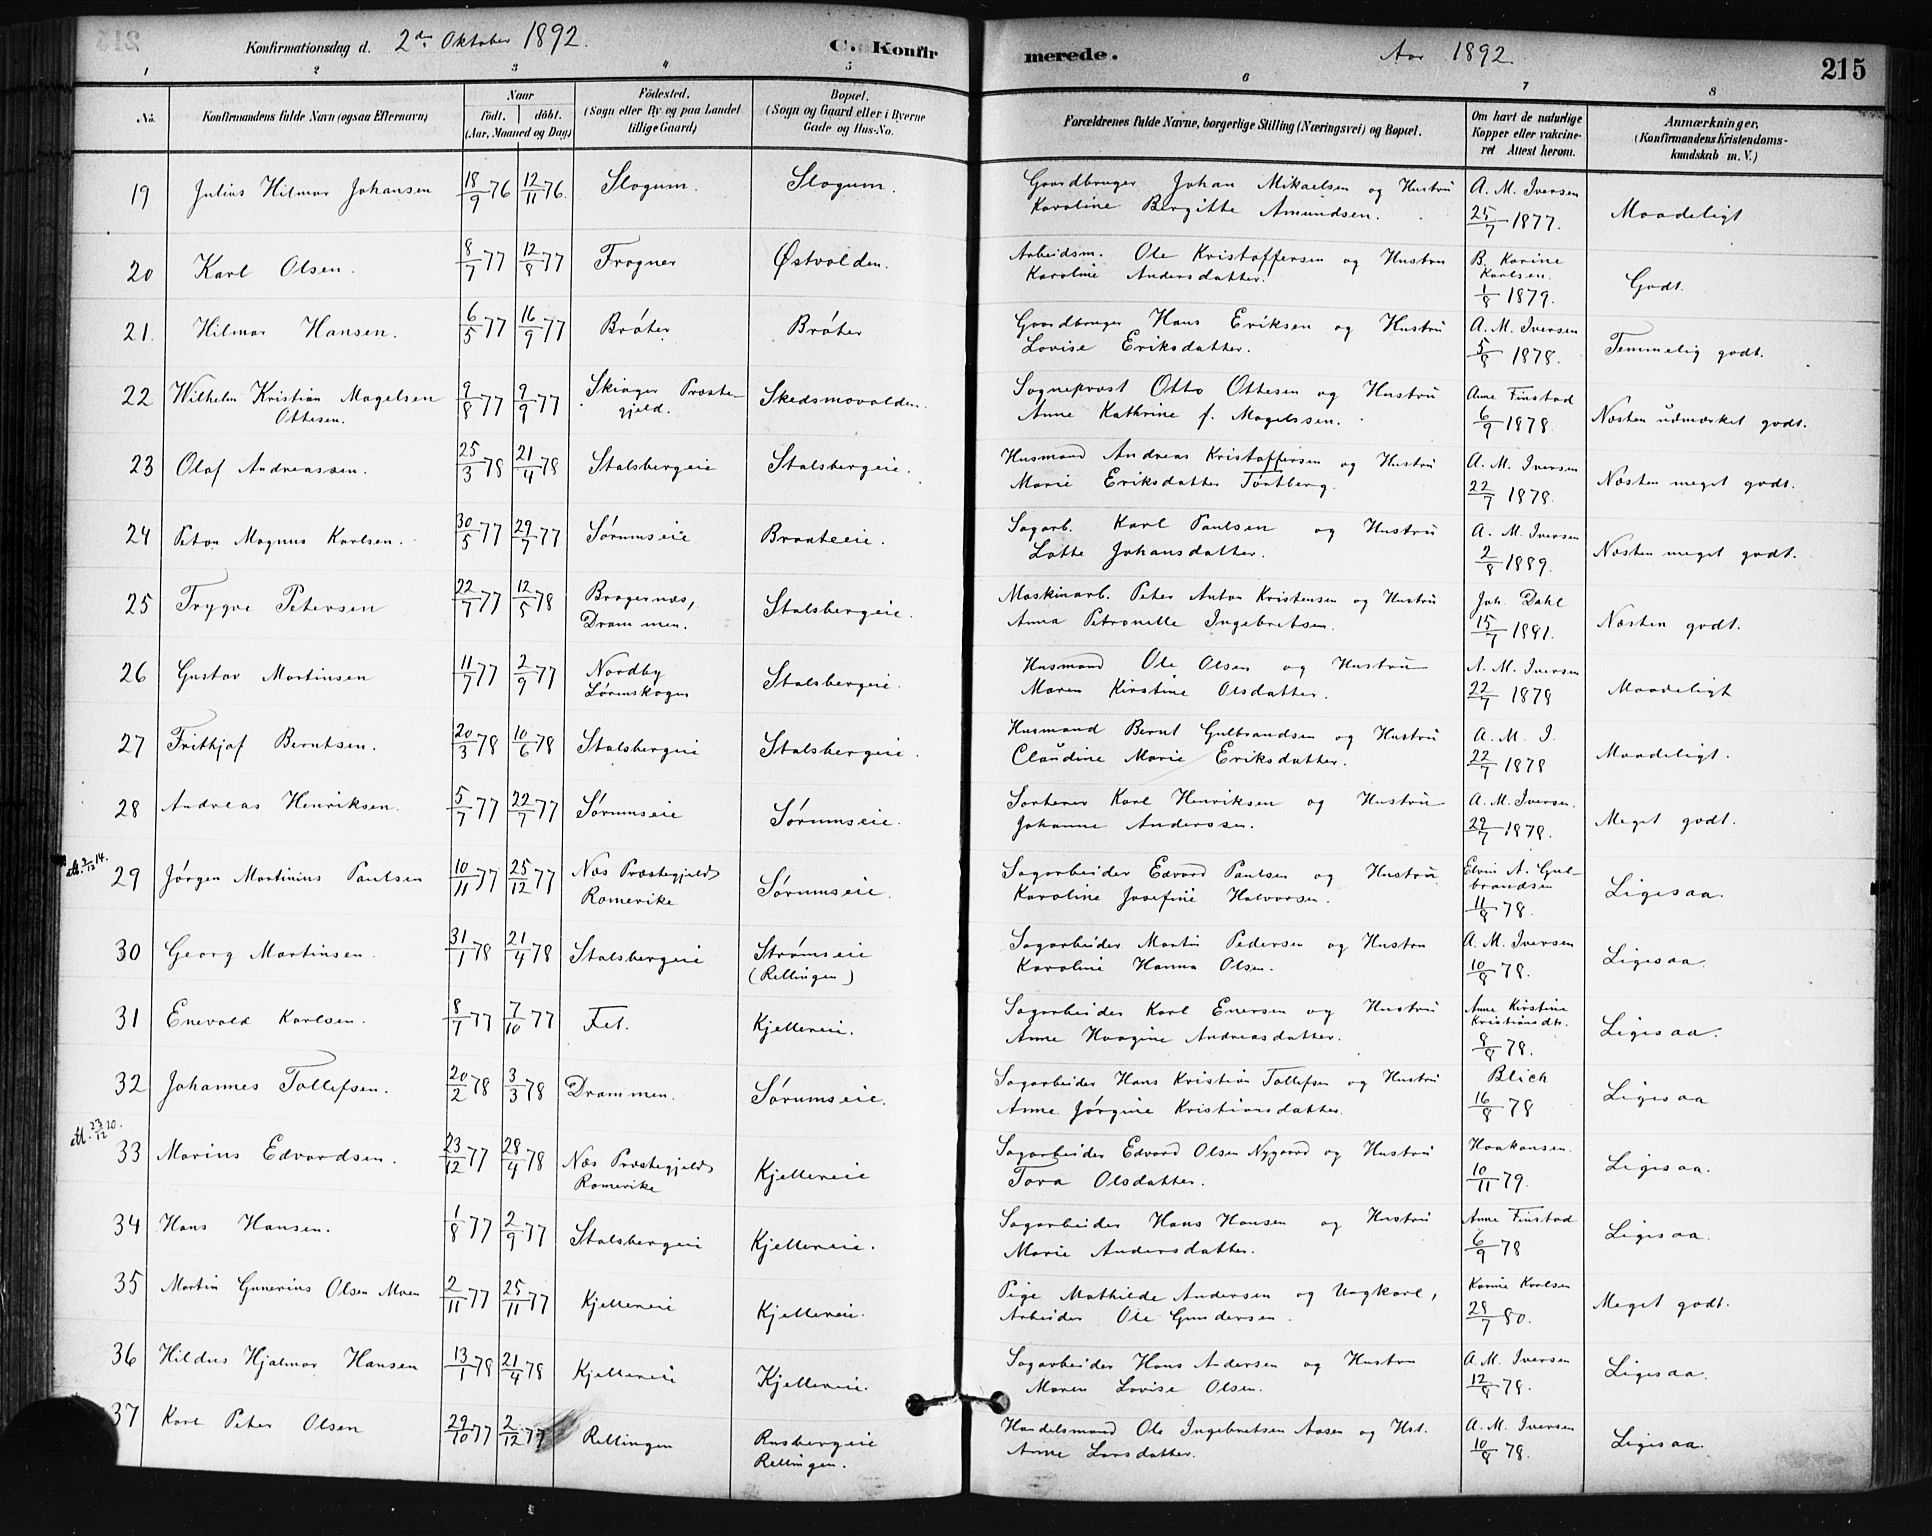 Konfirmationsdag d. 2den Oktober 1892. C. Konfirmerede. Aar 1892. 215
1 2 3 4 5 6 7 8
No. Konfirmandens fulde Navn (ogsaa Efternavn) Naar født. døbt. (Aar, Maaned og Dag) Fødested. (Sogn eller By og paa Landet tillige Gaard) Bopæl. (Sogn og Gaard eller i Byerne Gade og Hus-No. Forældrenes fulde Navne, borgerlige Stilling (Næringsvei) og Bopæl. Om havt de naturlige Kopper eller vakcineret Attest herom. Anmærkninger. (Konfirmandens Kristendomskundskab m. V.)
19 Julius Hilmar Johansen 18/9 76 12/11 76. Slogum. Slogum. Gaardbruger Johan Mikaelsen og Hustru A. M. Iversen
Karoline Bergitte Amundsen. 25/7 1877. Maadeligt
20 Karl Olsen. 8/7 77 12/8 77 Frogner Østvolden. Arbeidsm. Ole Kristoffersen og Hustru B. Karine Karlsen.
Karoline Andersdatter. 1/8 1879. Godt.
21. Hilmar Hansen. 6/5 77 16/9 77 Brøter Brøter Gaardbruger Hans Eriksen og Hustru A. M. Iversen
Lovise Eriksdatter. 5/8 1878. Temmelig godt.
22 Wilhelm Kristian Magelsen 9/8 77 9/9 77 Skiager Præste- Skedsmovolden. Sogneprest Otto Ottesen og Hustru Anne Finstad
Ottesen. gjeld. Anne Kathrine f. Magelssen. 6/9 1878. Næsten udmærket godt.
23 Olaf Andreassen. 25/3 78 21/4 78 Stalsbergeie Stalsbergeie. Husmand Andreas Kristoffersen og Hustru A. M. Iversen
Marie Eriksdatter Törtberg. 22/7 1878. Næsten meget godt.
24 Peter Magnus Karlsen. 30/5 77 29/7 77 Sørumseie Braateeie. Sagarb. Karl Paulsen og Hustru A. M. Iversen
Lotte Johansdatter. 2/8 1889. Næsten meget godt.
25 Trygve Petersen 22/7 77 12/5 78 Bragernæs, Stalsbergeie. Maskinarb. Peter Anton Kristensen og Hustru Joh. Dahl
Drammen. Anna Petronelle Ingebretsen. 15/7 1881. Næsten godt.
26 Gustav Martinsen 11/7 77 2/9 77 Nordby Stalsbergeie. Husmand Ole Olsen og Hustru A. M. Iversen
Lørenskogen Maren Kirstine Olsdatter. 22/7 1878 Maadeligt
27 Frithjof Berntsen. 20/3 78 10/6 78 Stalsbergeie Stalsbergeie. Husmand Bernt Gulbrandsen og Hustru A. M. I.
Claudine Marie Eriksdatter. 22/7 1878 Maadeligt.
28 Andreas Henriksen. 5/7 77 22/7 77 Sørumseie Sørumseie. Sorterer Karl Henriksen og Hustru A. M. Iversen.
Johanne Anderssen. 22/7 1878. Meget godt.
att. 3/12 14.
29 Jørgen Martinius Paulsen 10/11 77 25/12 77 Næs Præstegjeld Sørumseie. Sagarbeider Edvard Paulsen og Hustru Elvin A. Gulbrandsen
Romerike Karoline Josefine Halvorsen. 11/8 78. Ligesaa.
30 Georg Martinsen. 31/1 78 21/4 78 Stalsbergeie Strømseie Sagarbeider Martin Pedersen og Hustru A. M. Iversen
(Rellingen) Karoline Hanna Olsen. 10/8 78. Ligesaa.
31 Enevald Karlsen. 8/7 77 7/10 77 Fet. Kjellereie. Sagarbeider Karl Enersen og Hustru Anne Kirstine Kristiansdtr.
Anne Haagine Andreasdatter. 8/8 78. Ligesaa.
32 Johannes Tollefsen. 20/2 78 3/3 78 Drammen. Sørumseie. Sagarbeider Hans Kristian Tollefsen og Hustru Blich
Anne Jørgine Kristiansdatter. 16/8 78 Ligesaa
att. 23/12 20.
33 Marius Edvardsen. 23/12 77 28/4 78 Næs Præstegjeld Kjellereie Sagarbeider Edvard Olsen Nygaard og Hustru Haakansen.
Romerike Tora Olsdatter. 10/11 79. Ligesaa.
34 Hans Hansen. 1/8 77 2/9 77 Stalsbergeie Kjellereie. Sagarbeider Hans Hansen og Hustru Anne Finstad
Marie Andersdatter. 6/9 78 Ligesaa.
35 Martin Gunerius Olsen Moen 2/11 77 25/11 77 Kjellereie Kjellereie. Pige Mathilde Andersen og Ungkarl, Karine Karlsen
Arbeider Ole Gundersen. 28/7 80. Meget godt.
36 Hildus Hjalmar Hansen 13/1 78 21/4 78 Kjellereie Kjellereie. Sagarbeider Hans Andersen og Hustru A. M. Iversen
Maren Lovise Olsen. 12/8 78. Ligesaa.
37 Karl Peter Olsen 29/10 77 2/12 77 Rellingen Rusbergeie Handelsmand Ole Ingebretsen Aasen og Hst. A. M. Iversen
Rellingen. Anne Larsdatter. 10/8 78. Ligesaa.